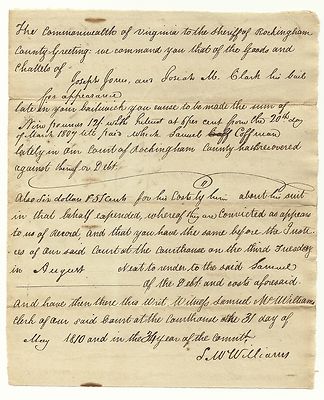 The Commonwealth of Virginia to the Sheriff of Rockingham
County Greeting: we command you that of the Goods and
Chattels of
Joseph Jones, and Josiah M. Clark his bail
for appearance
late in your bailiwick you cause to be made the sum of
Nine pounds 12/ with Interest at 6 per cent from the 20th day
of March 1807 till paid which Samuel Coffman
lately in our Court of Rockingham County hath recovered
against them for Debt.
Also six dollars & 55 Cents for his Costs by him about his suit
in that behalf expended, whereof they are Convicted as appears
to us of Record, and that you have the same before the Justic-
es of our said Court at the Courthouse on the third Tuesday
in August Next to render to the said Samuel
of the Debt and costs aforesaid
And have then there this Writ. Witness Samuel McWilliams
Clerk of our said Court at the Courthouse the 31 day of
May 1810 and in the 34 year of the Commth.
S. McWilliams